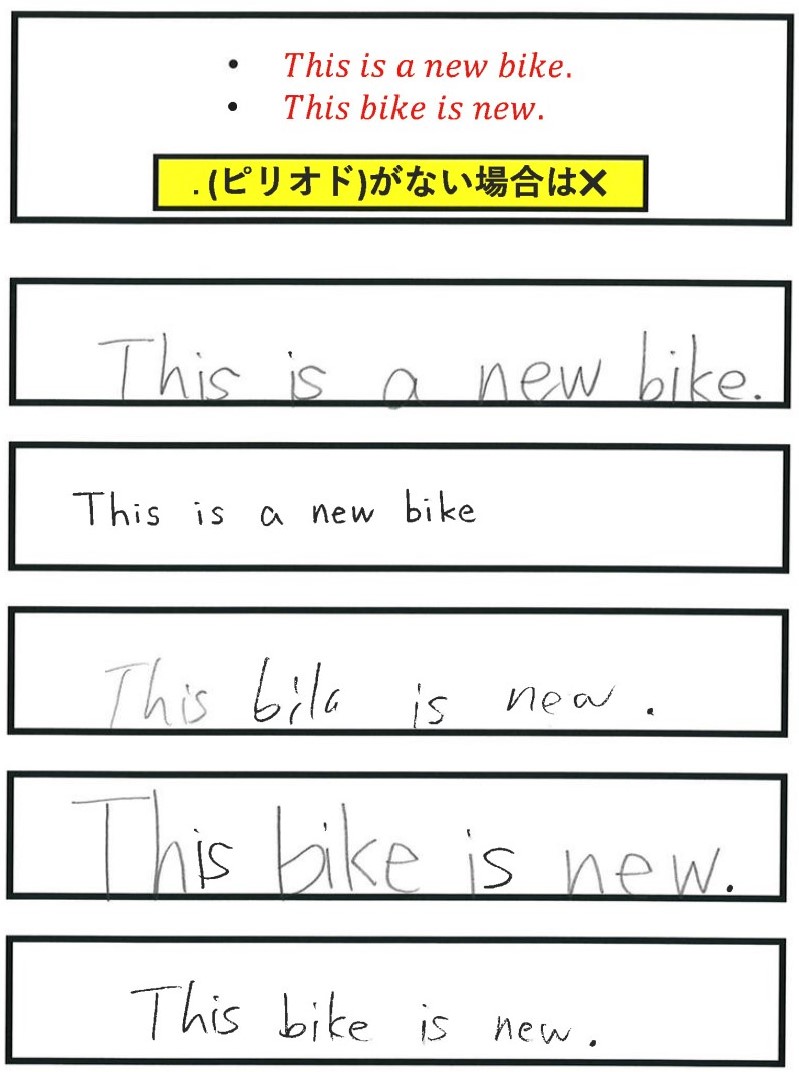 • This is a new bike.
• This bike is new.
. (ピリオド)がない場合は✕
This is a new bike.
This is a new bike
This bila is new.
This bike is new.
This bike is new.